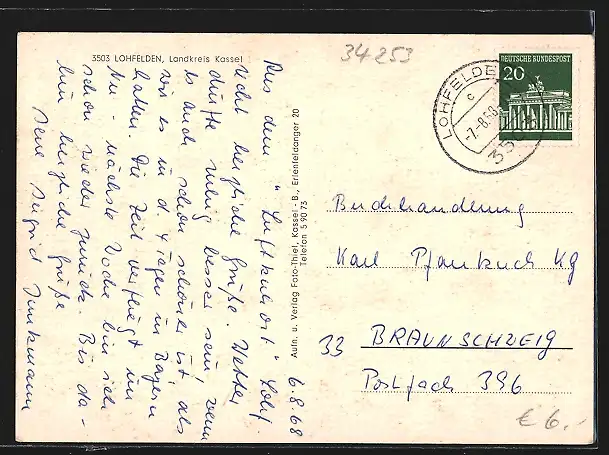 3503 LOHFELDEN, Landkreis Kassel
34253
LOHFELDEN
c
-7.-8.68
3503
DEUTSCHE BUNDESPOST
20
6.8.68
Aus dem "Luftkurort" Lohf.
recht herzliche Grüße. Wetter
dürfte ruhig besser sein, wenn
es auch schon schöner ist als
wir es in d. 4 Tagen in Bayern
hatten. Die Zeit verfliegt im
Nu - nächste Woche bin ich
schon wieder zurück. Bis da-
hin herzliche Grüße
Sigrid
Aufn. u. Verlag Foto-Thiel, Kassel - B., Erlenfeldanger 20
Telefon 5 90 73
Buchhandlung
Karl Pfankuch KG
33 BRAUNSCHWEIG
Postfach 396
€ 6,-